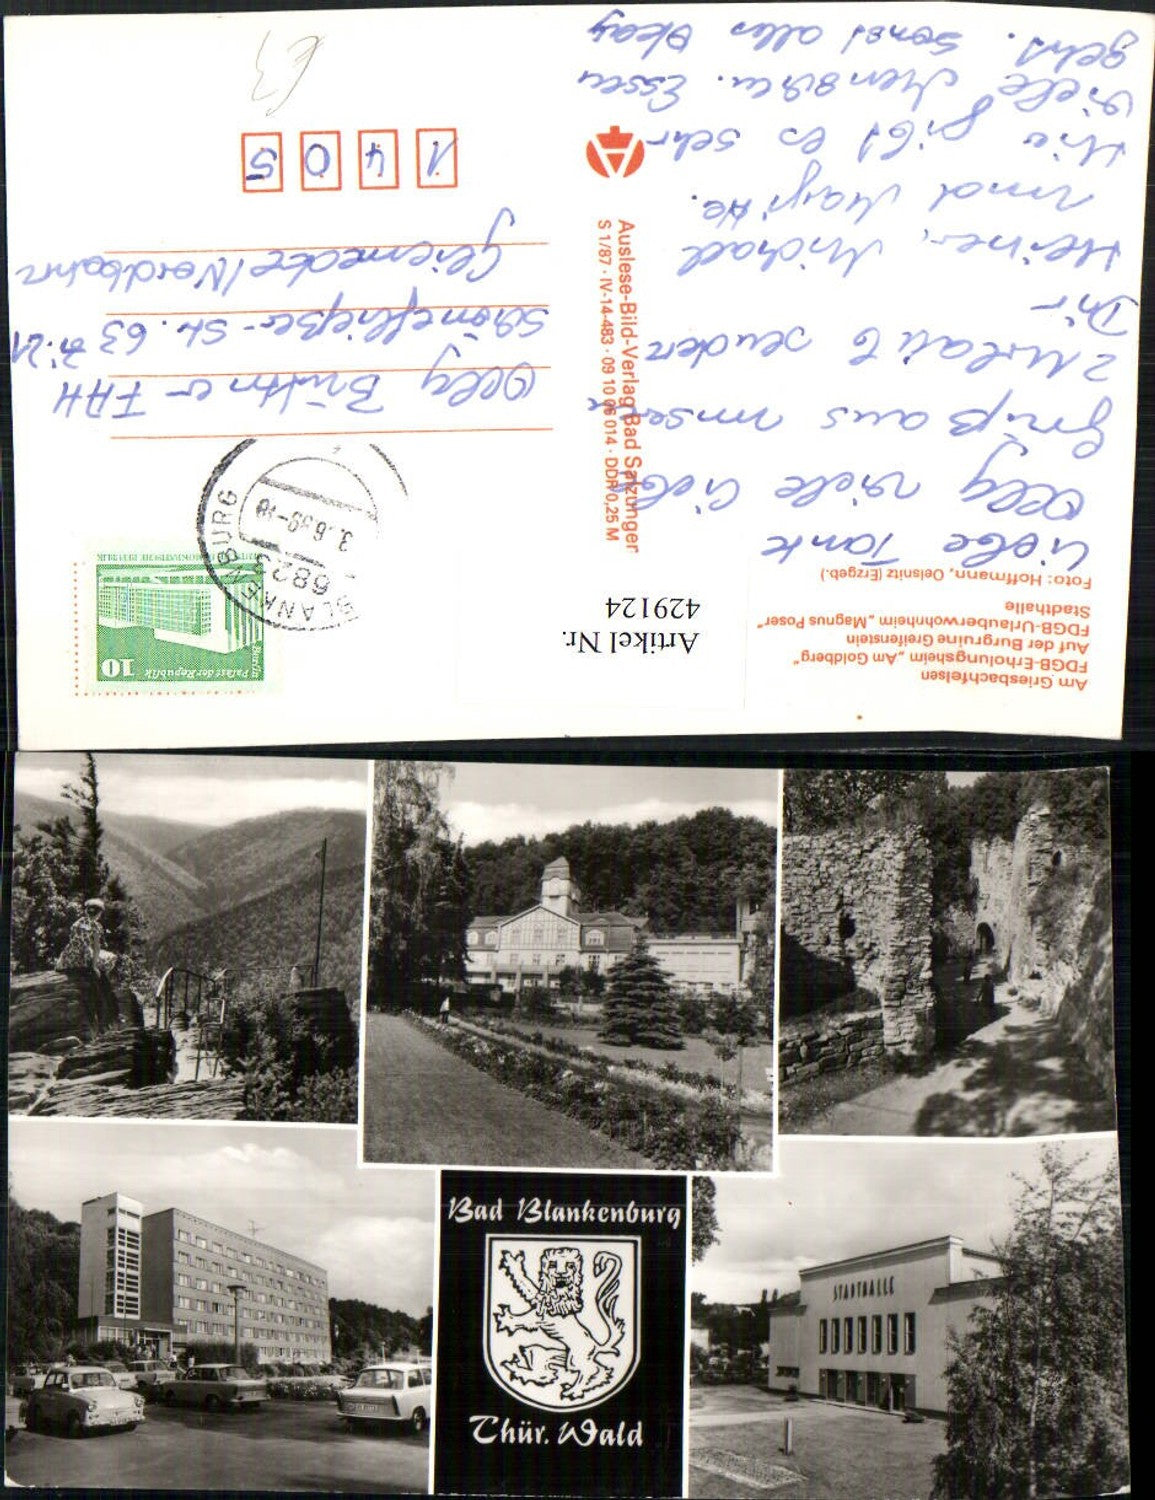 Am Griesbachfelsen
FDGB-Erholungsheim „Am Goldberg"
Auf der Burgruine Greifenstein
FDGB-Urlauberwohnheim „Magnus Poser"
Stadthalle
Foto: Hoffmann, Oelsnitz (Erzgeb.)
Liebe Tante
Olly viele liebe
Grüß aus unsern
2 Urlaub senden
Dir
Heiner, Michael
und
Hier gibt es sehr
viele Menschen. Essen
geht. Sonst alles Okay
Auslese-Bild-Verlag Bad Salzungen
S 1/87 · IV-14-483 · 09 10 06 014 · DDR 0,25 M
Artikel Nr.
429124
10
Berlin
Palast der Republik
BLANKENBURG
6823
Olly Büttner FAH
Schönefließer-Str. 63
Glienecke/Nordbahn
1 4 0 5
€3
STADTHALLE
Bad Blankenburg
Thür. Wald